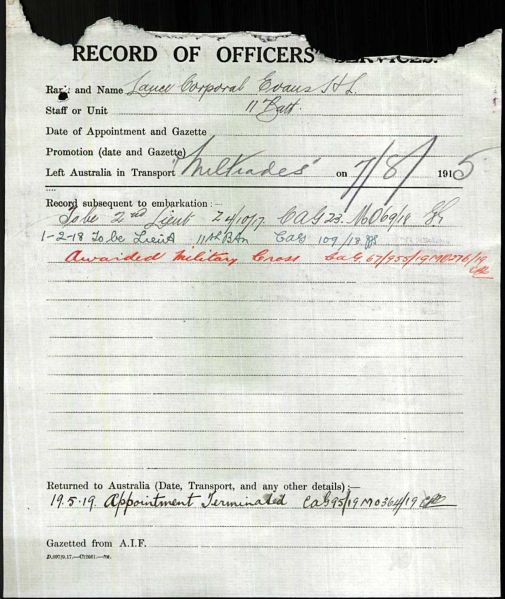 RECORD OF OFFICERS' SERVICES.
Rank and Name Lance Corporal Evans H L.
Staff or Unit 11 Batt.
Date of Appointment and Gazette
Promotion (date and Gazette)
Left Australia in Transport "Miltiades" on 7/8/ 1915
Record subsequent to embarkation :—
To be 2nd Lieut 24/10/17 CAG 23. MO69/18
1-2-18 To be Lieut 11th Btn CAG 109/18
Awarded Military Cross CAG 67/955/19 MO276/19
Returned to Australia (Date, Transport, and any other details) :—
19.5.19. Appointment Terminated CAG 95/19 MO364/19
Gazetted from A.I.F.